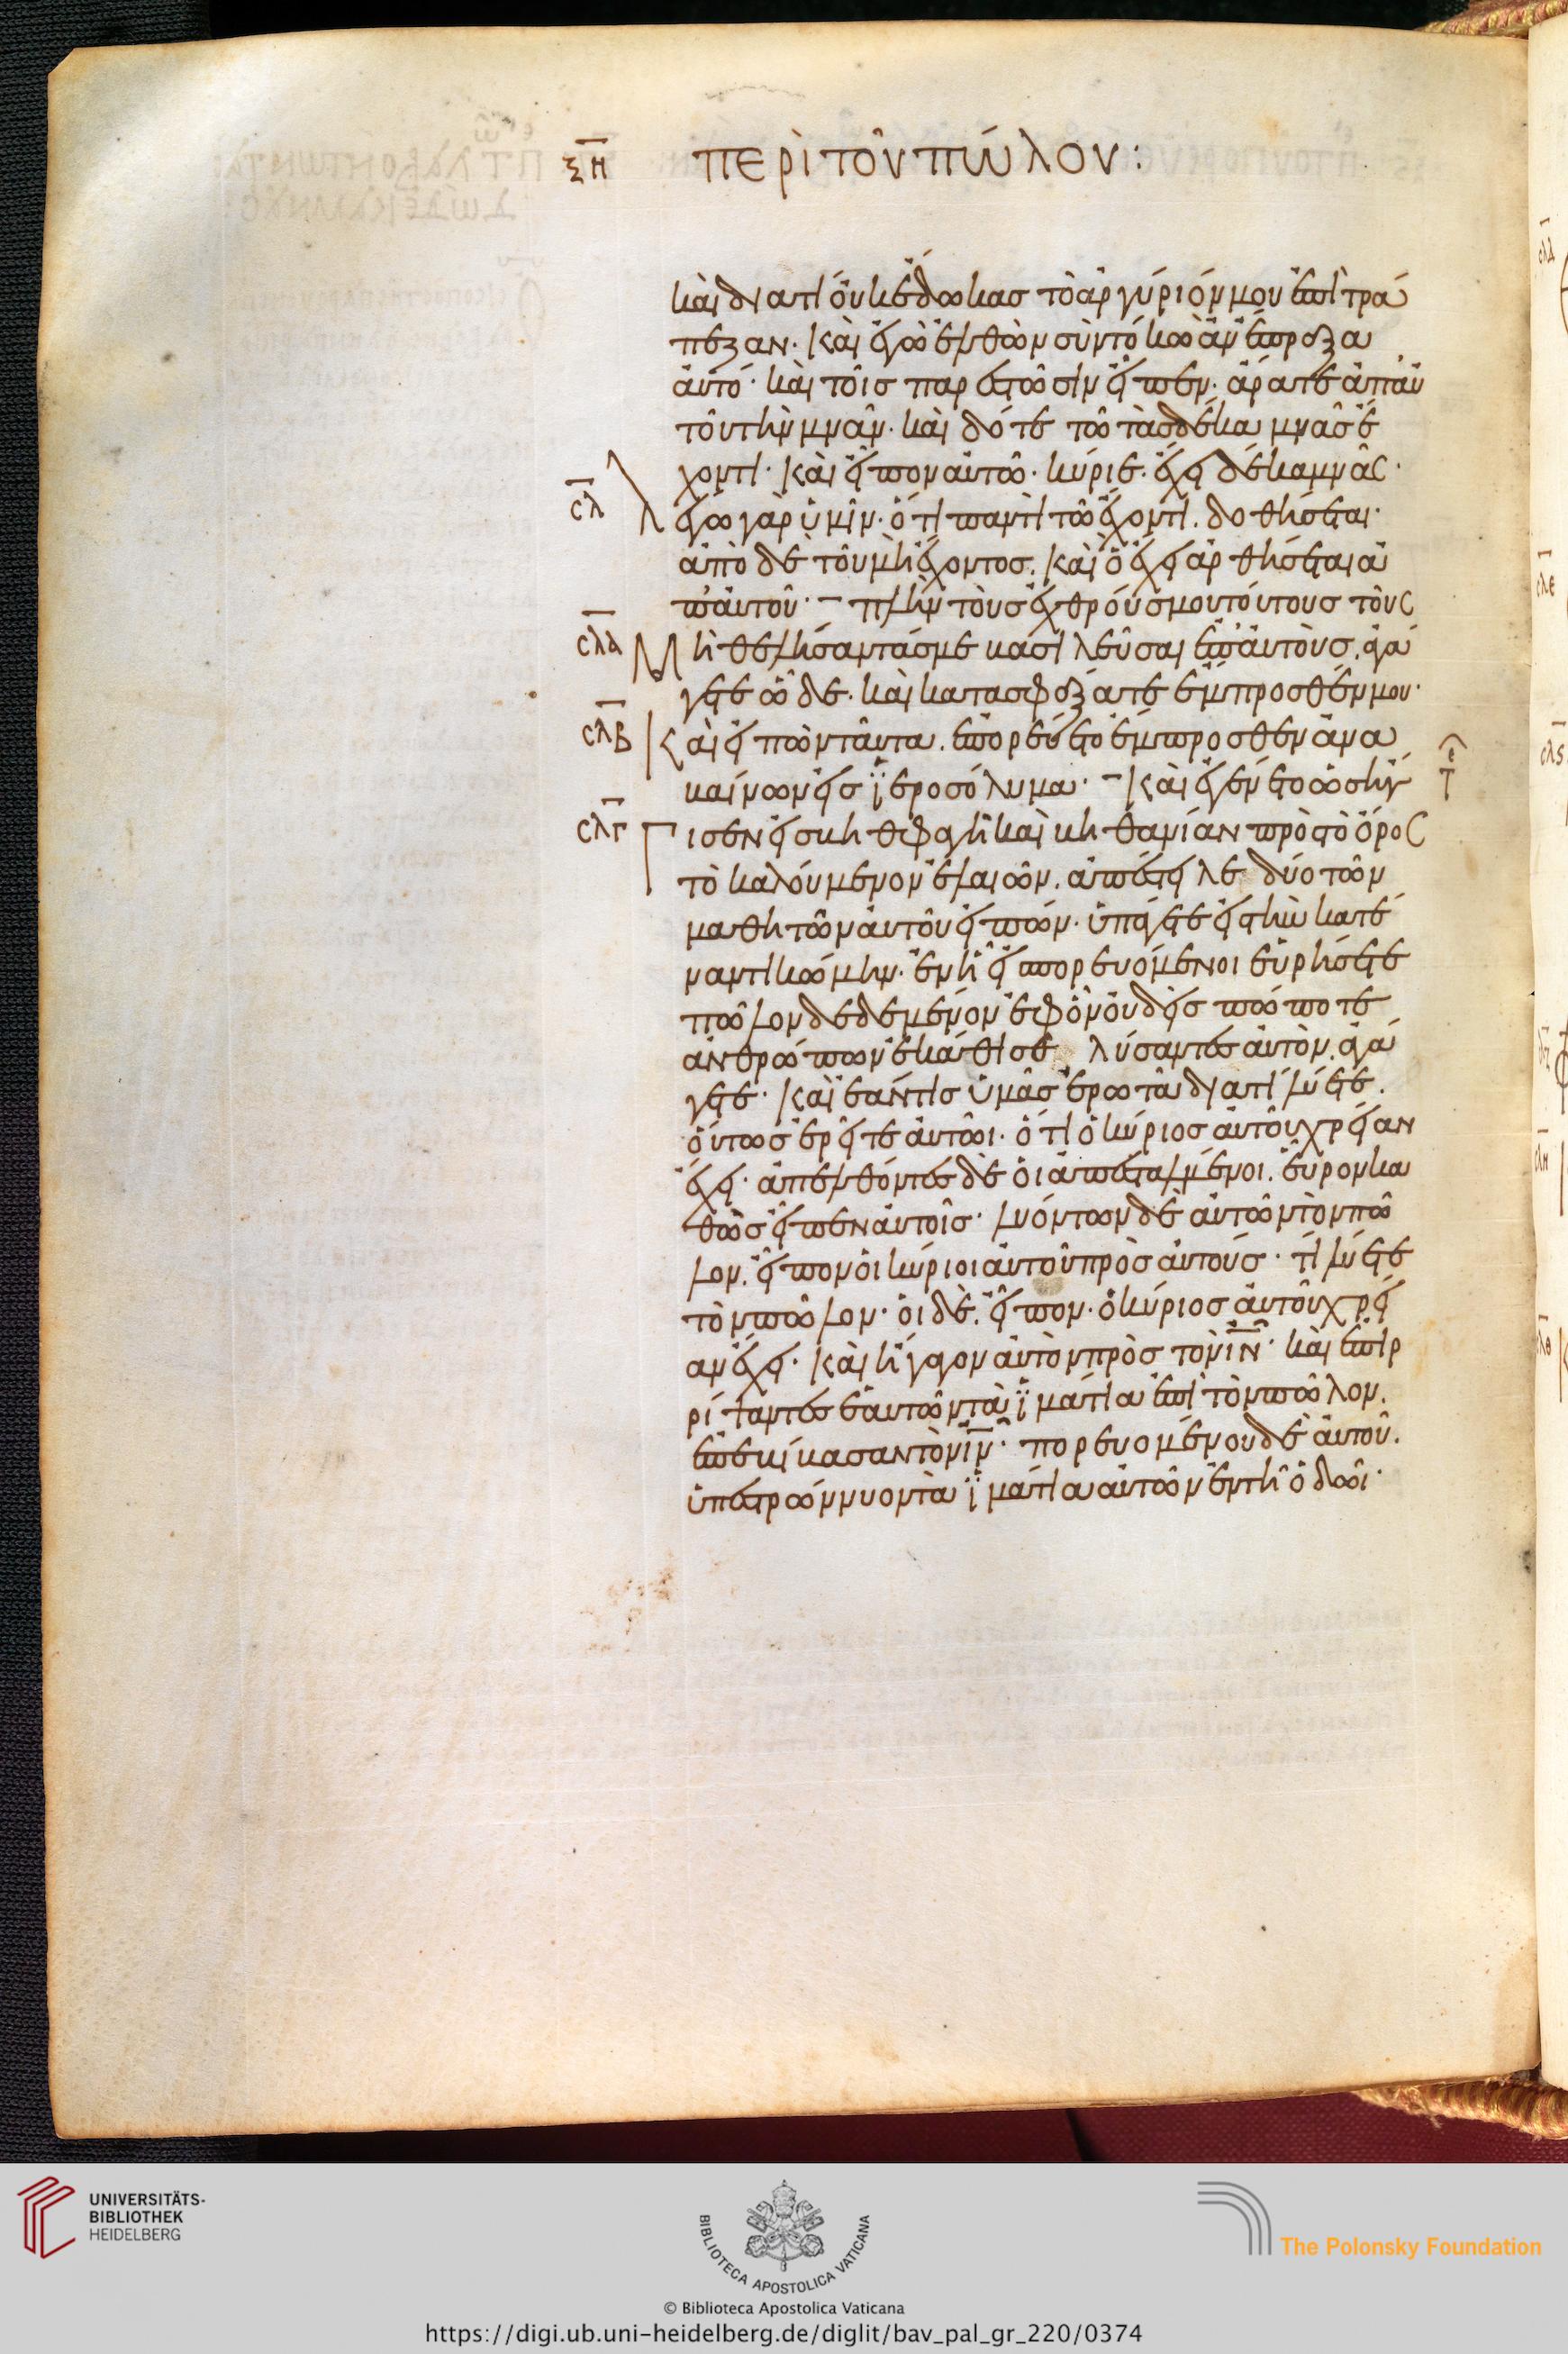 ξη περὶ τοῦ πώλου:
καὶ διατί οὐκ ἔδωκας τὸ ἀργύριόν μου ἐπὶ τρά
πεζαν· καὶ ἐγὼ ἐλθὼν σὺν τόκω ἂν ἔπραξα
αὐτό· καὶ τοῖς παρεστῶσιν εἶπεν· ἄρατε ἀπ αὐ
τοῦ τὴν μνᾶν· καὶ δότε τῶ τὰς δέκα μνᾶς ἔ
χοντι· καὶ εἶπον αὐτῶ· κύριε· ἔχει δέκα μνᾶς·
σλ λέγω γὰρ ὑμῖν· ὅτι παντὶ τῶ ἔχοντι. δοθήσεται·
ἀπὸ δὲ τοῦ μὴ ἔχοντος. καὶ ὃ ἔχει ἀρθήσεται ἀ
π αὐτοῦ· πλὴν τοὺς ἐχθρούς μου τούτους τοὺς
σλα Μὴ θελήσαντάς με βασιλεῦσαι ἐπ αὐτοὺς. ἀγά
γετε ὧδε. καὶ κατασφάξατε ἔμπροσθέν μου·
σλβ Καὶ εἰπὼν ταῦτα. ἐπορεύετο ἔμπροσθεν ἀνα
βαίνων εἰς ϊεροσόλυμα· Καὶ ἐγένετο ὡς ἤγ
σλγ Γισεν εἰς βηθσφαγὴ καὶ βηθανίαν πρὸς τὸ ὄρος
τὸ καλούμενον ἐλαιῶν. ἀπέστειλε δύο τῶν
μαθητῶν αὐτοῦ εἰπών· ὑπάγετε εἰς τὴν κατέ
ναντι κώμην· ἐν ἧ εἰσπορευόμενοι εὑρήσετε
πῶλον δεδεμένον ἐφ ὃν οὐδεὶς πώποτε
ἀνθρώπων ἐκάθισε λύσαντες αὐτὸν. ἀγά
γετε· Καὶ ἐάν τις ὑμᾶς ἐρωτᾶ διατί λύετε.
οὕτως ἐρεῖτε αὐτῶι· ὅτι ὁ κύριος αὐτοῦ χρείαν
ἔχει· ἀπελθόντες δὲ οἱ ἀπεσταλμένοι. εὗρον κα
θὼς εἶπεν αὐτοῖς· λυόντων δὲ αὐτῶν τὸν πῶ
λον. εἶπον οἱ κύριοι αὐτοῦ πρὸς αὐτούς· τί λύετε
τὸν πῶλον· οἱ δὲ. εἶπον· ὁ κύριος αὐτοῦ χρεί
αν ἔχει· Καὶ ἤγαγον αὐτὸν πρὸς τὸν ιν· καὶ ἐπιρ
ρίψαντες ἑαυτῶν τὰ ϊμάτια ἐπὶ τὸν πῶλον.
ἐπεβίβασαν τὸν ιν· πορευομένου δὲ αὐτοῦ.
ὑπεστρώννυον τὰ ϊμάτια αὐτῶν ἐν τῆ ὁδῶι·
UNIVERSITÄTS-
BIBLIOTHEK
HEIDELBERG
BIBLIOTECA APOSTOLICA VATICANA
The Polonsky Foundation
© Biblioteca Apostolica Vaticana
https://digi.ub.uni-heidelberg.de/diglit/bav_pal_gr_220/0374